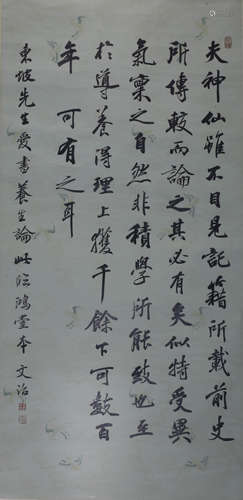 夫神仙雖不目見記籍所載前史
所傳較而論之其必有矣似特受異
氣稟之自然非積學所能致也至
於導養得理上獲千餘下可數百
年可有之耳
東坡先生愛書養生論此臨鴻堂本文治